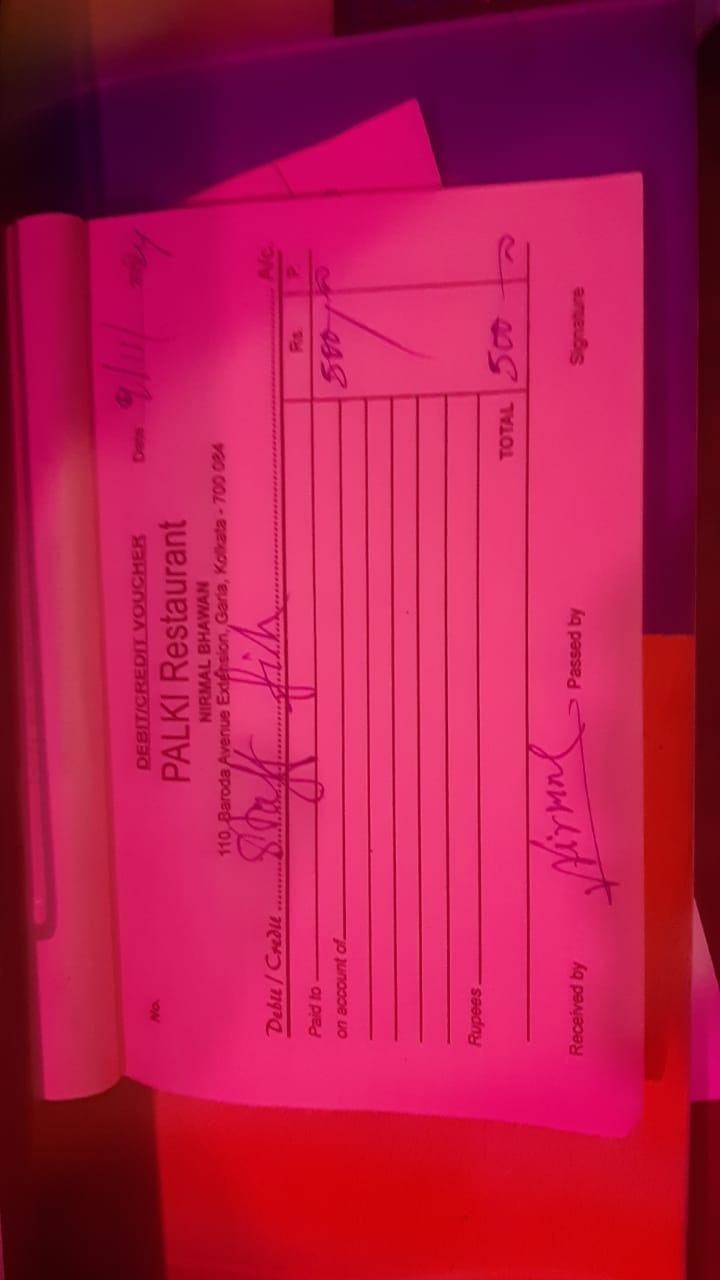 DEBIT/CREDIT VOUCHER
No. Date 9/11/2024
PALKI Restaurant
NIRMAL BHAWAN
110, Baroda Avenue Extension, Garia, Kolkata - 700 084
Debit / Credit Staff fish A/c.
Paid to Rs. P.
on account of 500/-
Rupees
TOTAL 500
Nirmal
Received by Passed by Signature